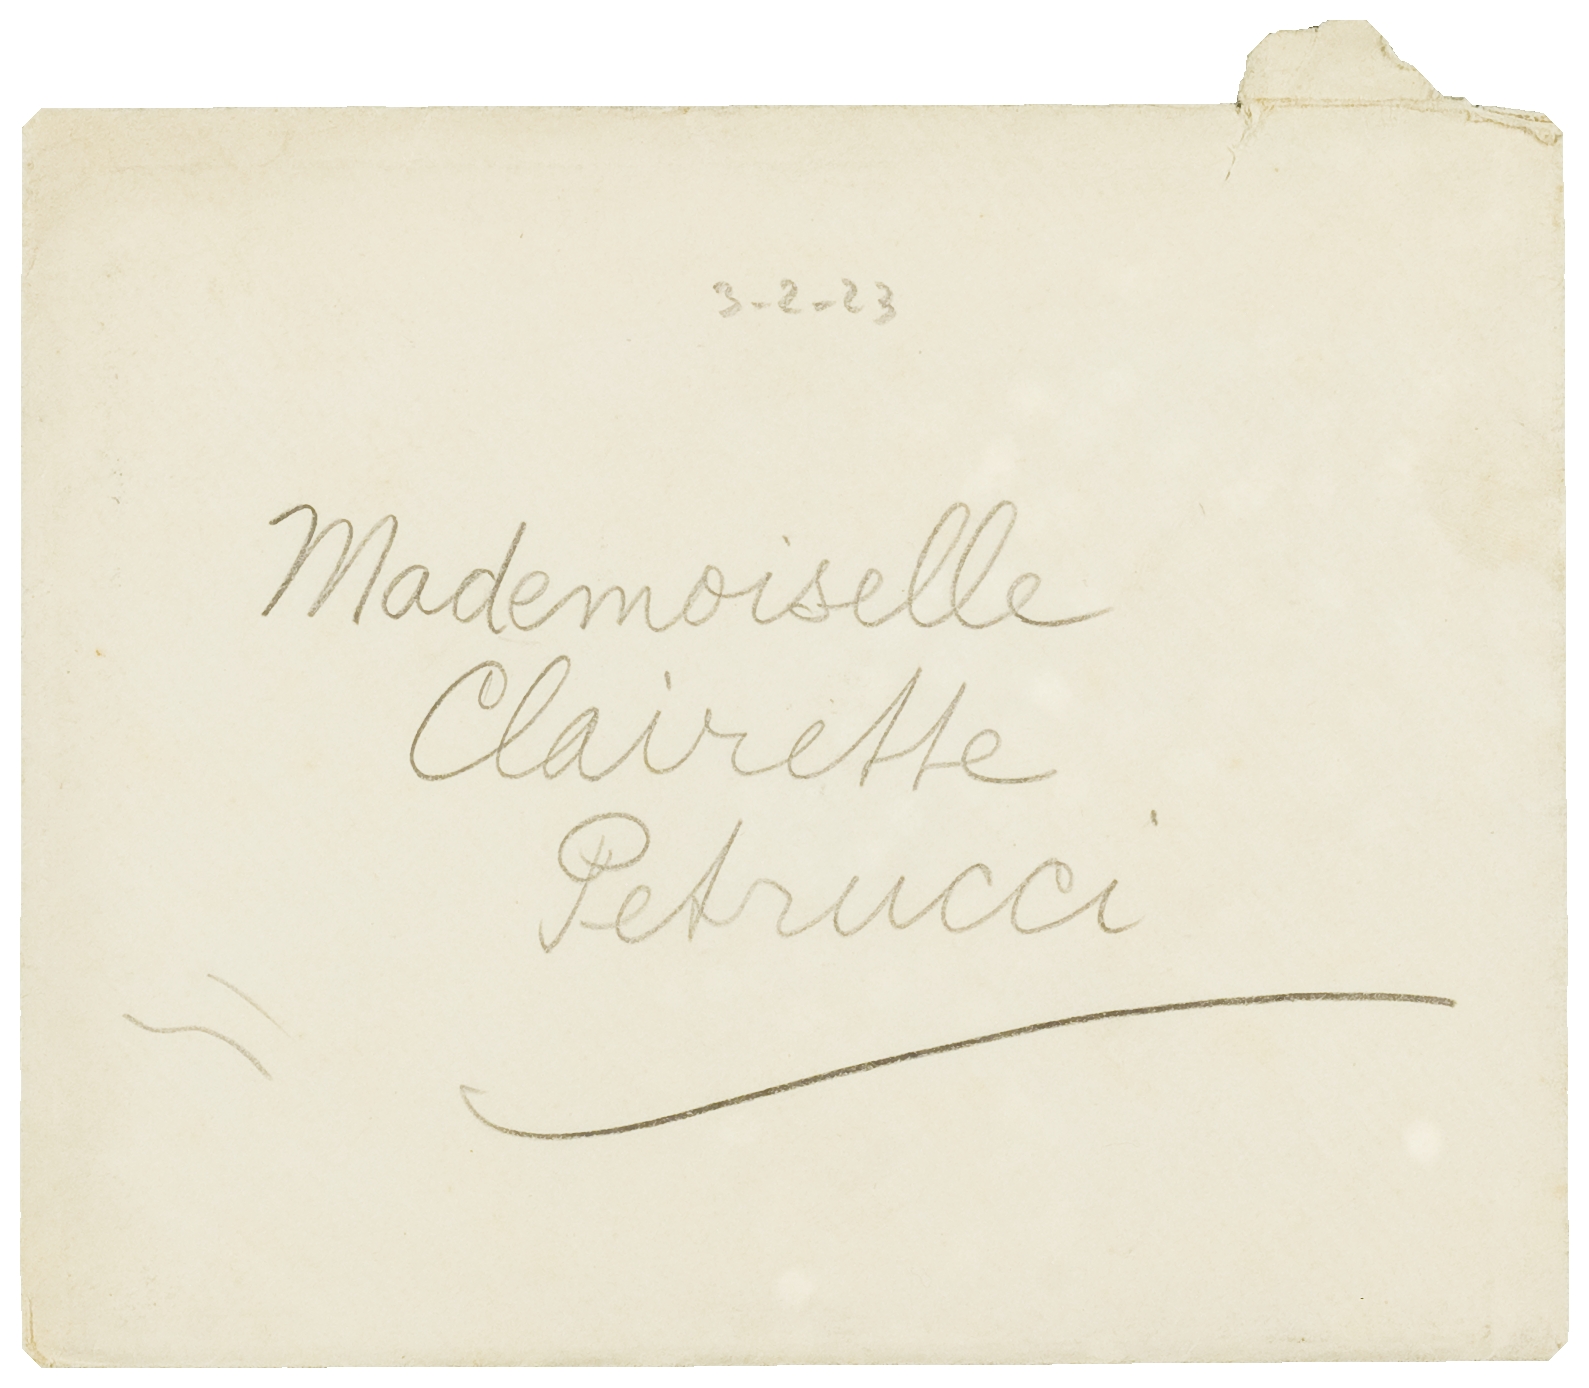 3-2-23
Mademoiselle
Clairette
Petrucci